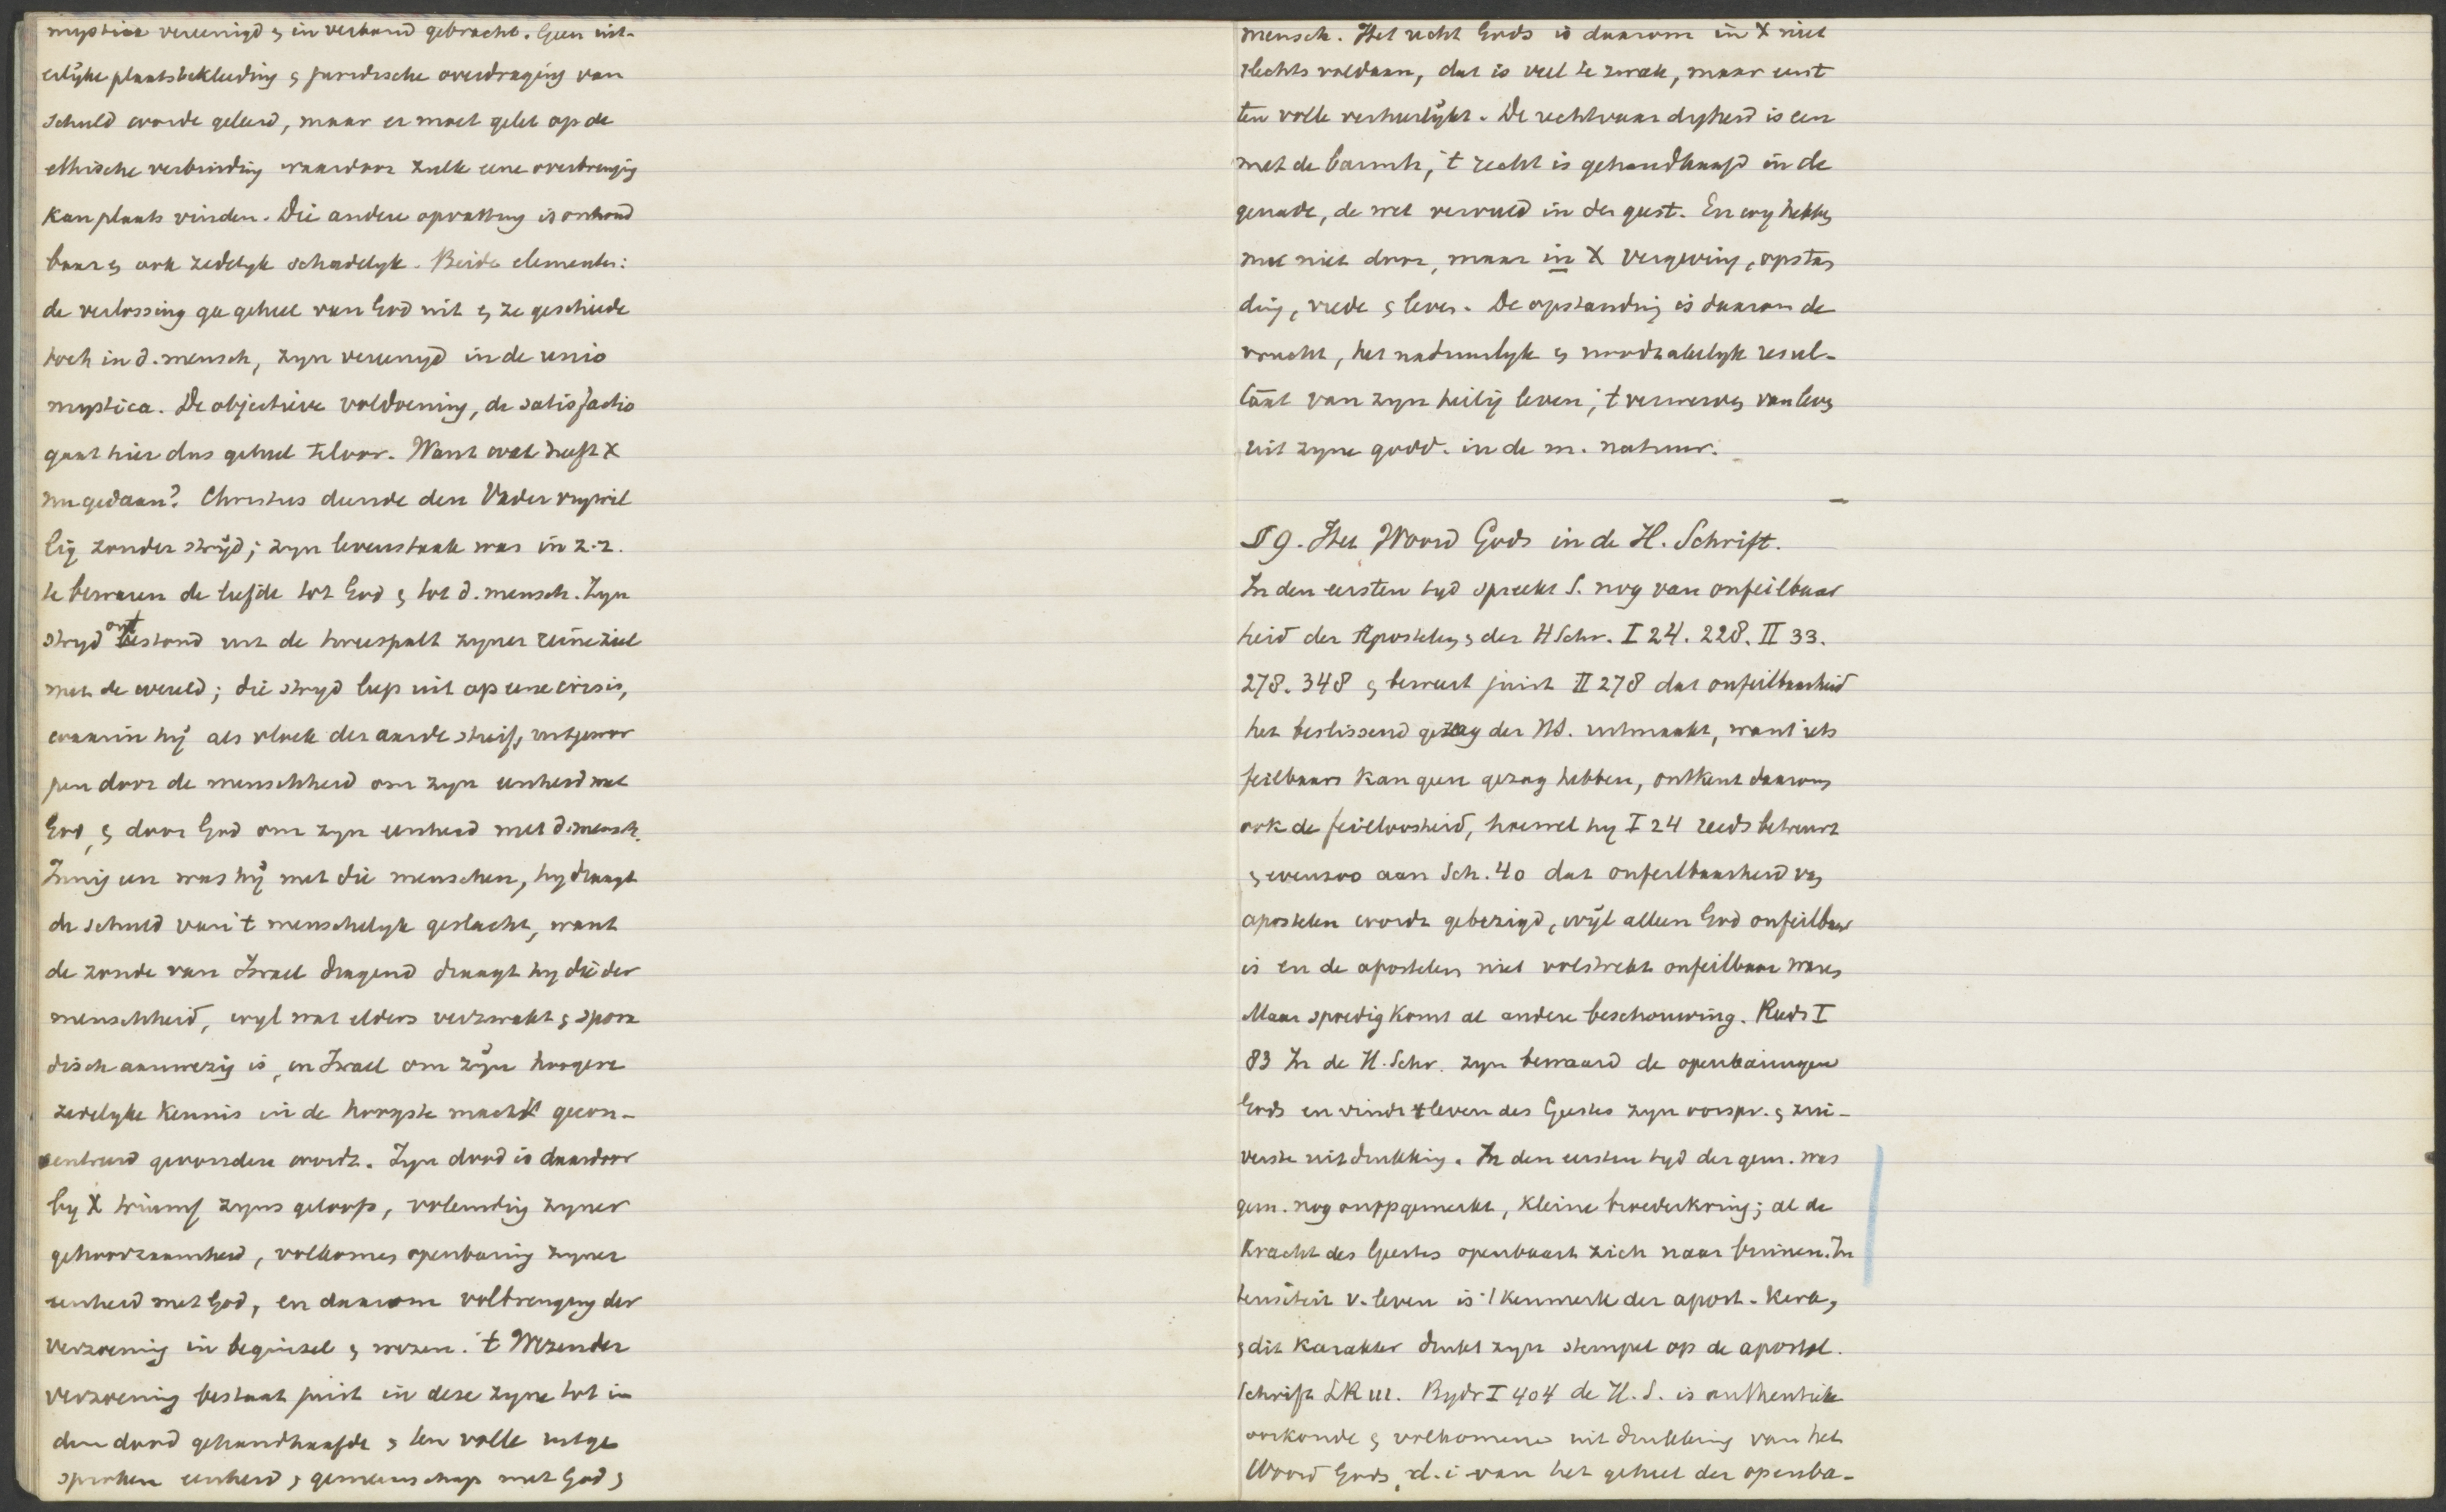 mystica vereenigd & in verband gebracht. Geen uit-
erlijke plaatsbekleeding & juridische overdraging van
schuld worde geleerd, maar er moet gelet op de
ethische verbinding waardoor zulk eene overbrenging
kan plaats vinden. Die andere opvatting is onhoud
baar & ook zedelyk schadelyk. Beide elementen:
de verlossing ga geheel van God uit & ze geschiede
toch in d. mensch, zyn vereenigd in de unio
mystica. De objectieve voldoening, de satisfactio
gaat hier dus geheel teloor. Want wat heeft X
nu gedaan? Christus diende den Vader vrywil
lig zonder strijd; zyn levenstaak was in z. z.
te bewaren de liefde tot God & tot d. mensch. Zyn
stryd ontstond uit de tweespalt zyner reine ziel
met de wereld; die stryd liep uit op eene crisis,
waarin hij als vloek der aarde stierf, uitgewor
pen door de menschheid om zyn eenheid met
God, & door God om zyn eenheid met d. mensch.
Innig een was hij met die menschen, hy draagt
de schuld van 't menschelyk geslacht, want
de zonde van Israel dragend draagt hy die der
menschheid, wyl wat elders verzwakt & spora
disch aanwezig is, in Israel om zijn hoogere
zedelyke kennis in de hoogste macht gecon-
centreerd gevonden wordt. Zyn dood is daardoor
by X triumf zyns geloofs, voleinding zyner
gehoorzaamheid, volkomen openbaring zyner
eenheid met God, en daarom volbrenging der
verzoening in beginsel & wezen. 't Wezen der
verzoening bestaat juist in deze zyne tot in
den dood gehandhaafde & ten volle uitge
sproken eenheid & gemeenschap met God &
mensch. Het recht Gods is daarom in X niet
slechts voldaan, dat is veel te zwak, maar eerst
ten volle verheerlijkt. De rechtvaardigheid is een
met de barmh, 't recht is gehandhaafd in de
genade, de wet vervuld in den geest. En wy hebben
nu niet door, maar in X vergeving, opstan
ding, vrede & leven. De opstanding is daarom de
vrucht, het natuurlyk & noodzakelyk resul-
taat van zyn heilig leven; 't verwerven van leven
uit zyne godd. in de m. natuur.
§ 9. Het Woord Gods in de H. Schrift.
In den eersten tyd spreekt S. nog van onfeilbaar
heid der Apostelen & der H Schr. I 24. 228. II 33.
278. 348 & beweert juist II 278 dat onfeilbaarheid
het beslissend gezag der HS. uitmaakt, want iets
feilbaars kan geen gezag hebben, ontkent daarom
ook de feilloosheid, hoewel hy I 24 reeds betreurt
& evenzoo aan Sch. 40 dat onfeilbaarheid van
apostelen wordt gebezigd, wijl alleen God onfeilbaar
is en de apostelen niet volstrekt onfeilbaar waren
Maar spoedig komt de andere beschouwing. Reeds I
83 In de H. Schr. zyn bewaard de openbaringen
Gods en vindt 't leven des Geestes zyn oorspr. & zui-
verste uitdrukking. In den eersten tyd der gem. was
gem. nog onopgemerkt, kleine broederkring; al de
kracht des Geestes openbaart zich naar binnen. In
tensiteit v. leven is 't kenmerk der apost. kerk,
& dit karakter drukt zyn stempel op de apostol.
Schrift I 404 de H. S. is authentieke
oorkonde & volkomene uitdrukking van het
Woord Gods, d. i. van het geheel der openba-